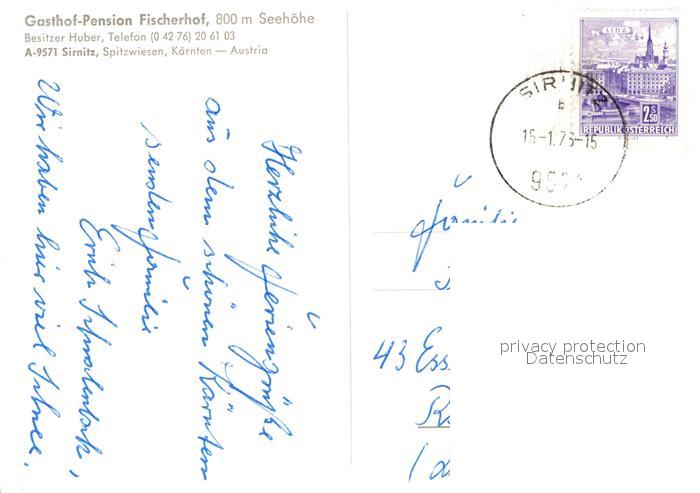 Gasthof-Pension Fischerhof, 800 m Seehöhe
Besitzer Huber, Telefon (0 42 76) 20 61 03
A-9571 Sirnitz, Spitzwiesen, Kärnten — Austria
LINZ
2 S 50
REPUBLIK ÖSTERREICH
SIRNITZ
b
15-1.76-15
Herzliche Feriengrüße
aus dem schönen Kärnten
senden Familie
Erich
Wir haben hier viel Schnee.
Familie
43 Ess
privacy protection
Datenschutz